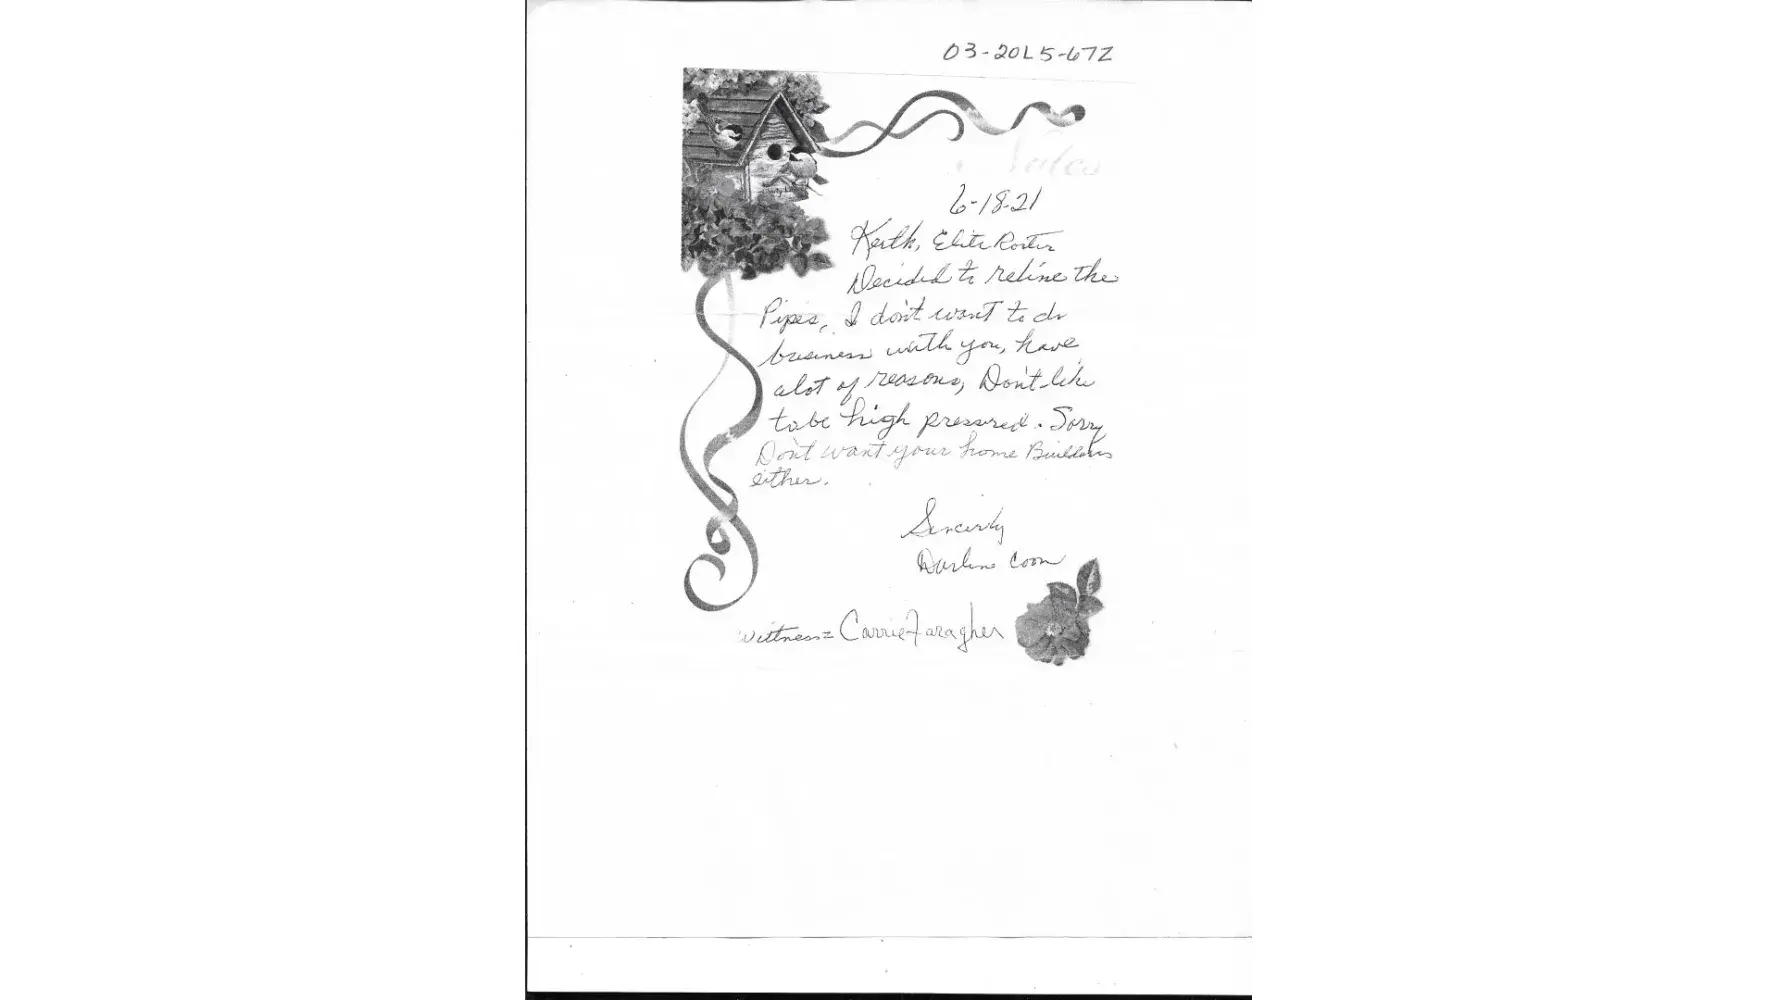 03-20L5-67Z
Notes
6-18-21
Keith, Elite Rooter
Decided to reline the
Pipes, I don't want to do
business with you, have
alot of reasons, Don't like
to be high pressured. Sorry
Don't want your home Builders
either.
Sincerly
Darlene Coon
Wittness = Carrie Faragher